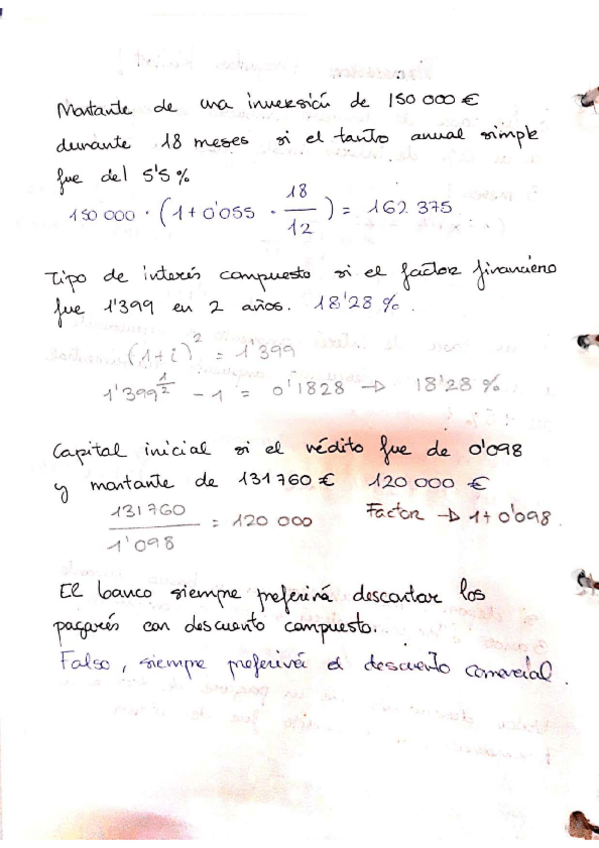 Montante de una inversión de 150 000 €
durante 18 meses si el tanto anual simple
fue del 5'5 %
150 000 · (1 + 0'055 · 18/12) = 162 375
Tipo de interés compuesto si el factor financiero
fue 1'399 en 2 años. 18'28 %.
(1+i)² = 1'399
1'399^(1/2) - 1 = 0'1828 → 18'28 %
Capital inicial si el rédito fue de 0'098
y montante de 131 760 € 120 000 €
131 760 / 1'098 = 120 000 Factor → 1 + 0'098.
El banco siempre preferirá descontar los
pagarés con descuento compuesto.
Falso, siempre preferirá el descuento comercial.